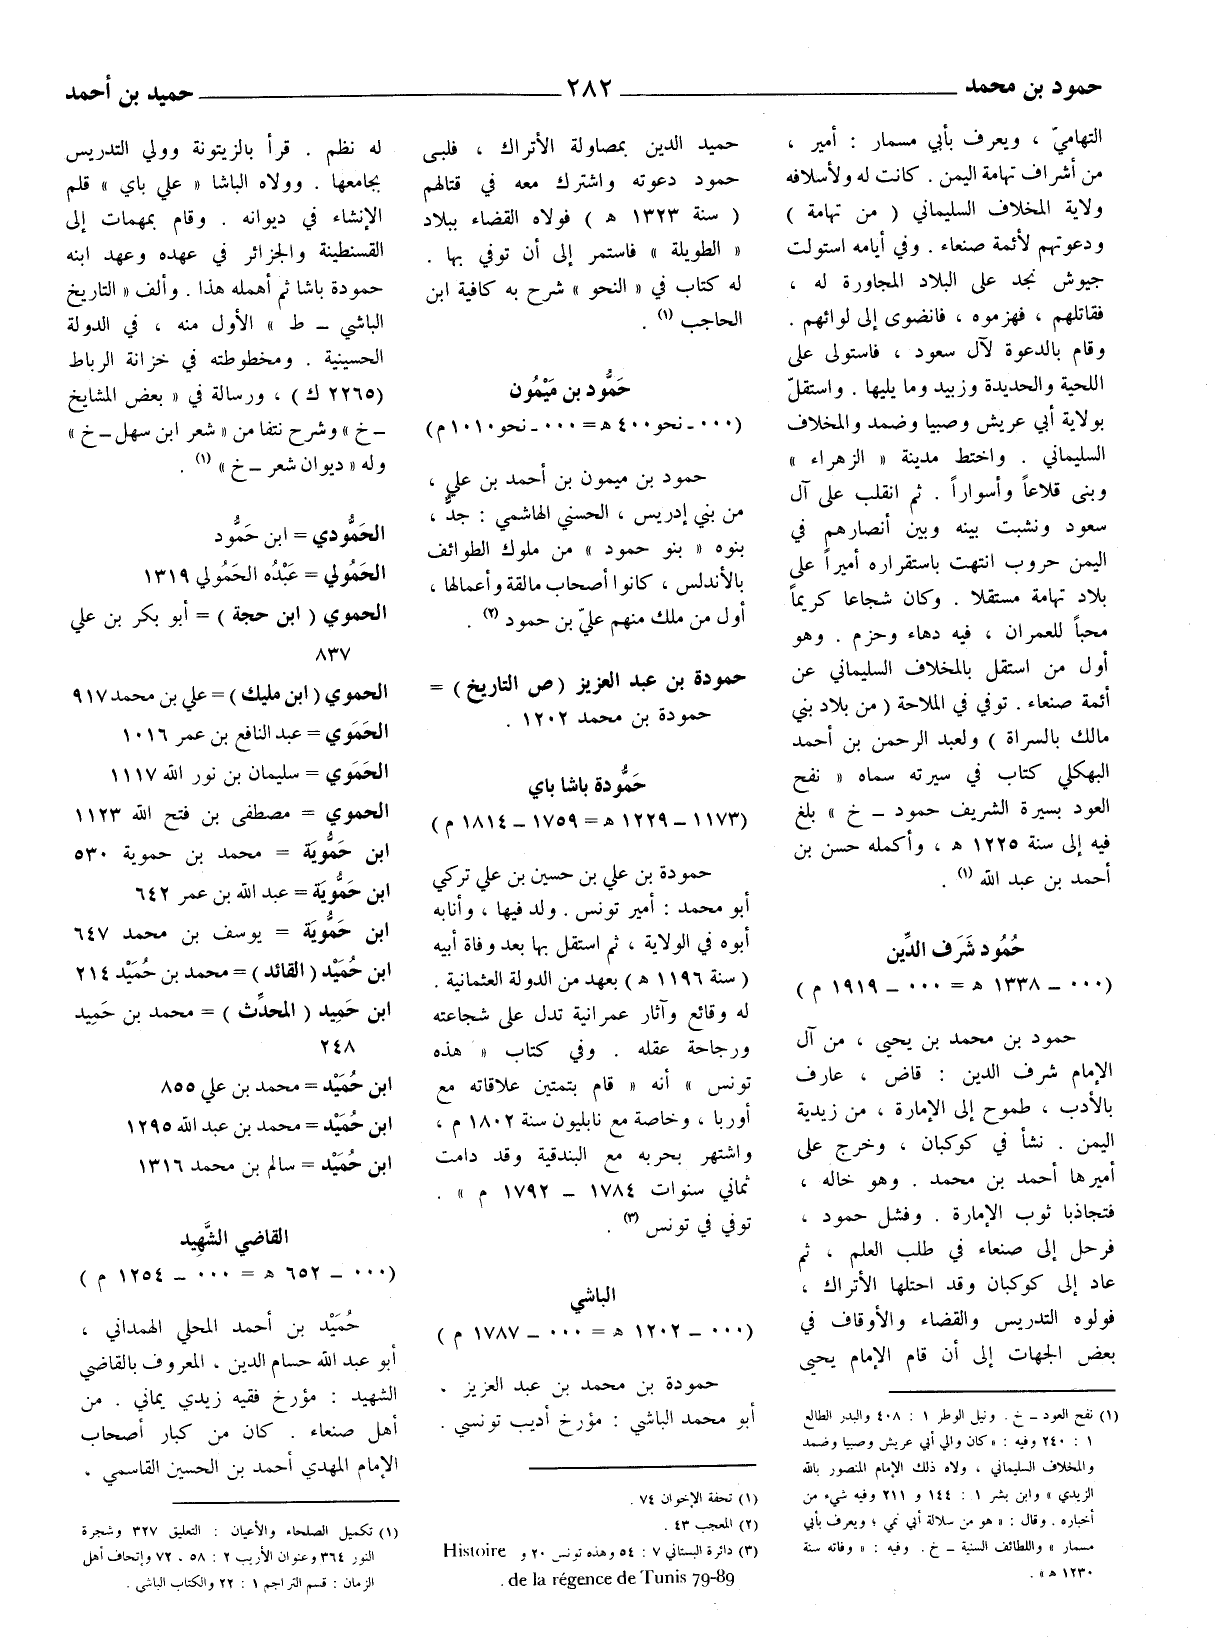 حمود بن محمد ٢٨٢ حميد بن أحمد
التهاميّ ، ويعرف بأبي مسمار : أمير ،
من أشراف تهامة اليمن . كانت له ولأسلافه
ولاية المخلاف السليماني ( من تهامة )
ودعوتهم لأئمة صنعاء . وفي أيامه استولت
جيوش نجد على البلاد المجاورة له ،
فقاتلهم ، فهزموه ، فانضوى إلى لوائهم .
وقام بالدعوة لآل سعود ، فاستولى على
اللحية والحديدة وزبيد وما يليها . واستقلّ
بولاية أبي عريش وصبيا وضمد والمخلاف
السليماني . واختط مدينة « الزهراء »
وبنى قلاعاً وأسواراً . ثم انقلب على آل
سعود ونشبت بينه وبين أنصارهم في
اليمن حروب انتهت باستقراره أميراً على
بلاد تهامة مستقلا . وكان شجاعا كريماً
محباً للعمران ، فيه دهاء وحزم . وهو
أول من استقل بالمخلاف السليماني عن
أئمة صنعاء . توفي في الملاحة ( من بلاد بني
مالك بالسراة ) ولعبد الرحمن بن أحمد
البهكلي كتاب في سيرته سماه « نفح
العود بسيرة الشريف حمود ــ خ » بلغ
فيه إلى سنة ١٢٢٥ هـ ، وأكمله حسن بن
أحمد بن عبد الله (١) .
حُمُود شَرَف الدِّين
(٠٠٠ ــ ١٣٣٨ هـ = ٠٠٠ ــ ١٩١٩ م )
حمود بن محمد بن يحيى ، من آل
الإمام شرف الدين : قاض ، عارف
بالأدب ، طموح إلى الإمارة ، من زيدية
اليمن . نشأ في كوكبان ، وخرج على
أميرها أحمد بن محمد . وهو خاله ،
فتجاذبا ثوب الإمارة . وفشل حمود ،
فرحل إلى صنعاء في طلب العلم ، ثم
عاد إلى كوكبان وقد احتلها الأتراك ،
فولوه التدريس والقضاء والأوقاف في
بعض الجهات إلى أن قام الإمام يحيى
(١) نفح العود ــ خ . ونيل الوطر ١ : ٤٠٨ والبدر الطالع
١ : ٢٤٠ وفيه : « كان والي أبي عريش وصبيا وضمد
والمخلاف السليماني ، ولاه ذلك الإمام المنصور بالله
الزيدي » وابن بشر ١ : ١٤٤ و ٢١١ وفيه شيء من
أخباره . وقال : « هو من سلالة أبي نمي ؛ ويعرف بأبي
مسمار » واللطائف السنية ــ خ . وفيه : « وفاته سنة
١٢٣٠ هـ » .
حميد الدين بمصاولة الأتراك ، فلبى
حمود دعوته واشترك معه في قتالهم
( سنة ١٣٢٣ هـ ) فولاه القضاء ببلاد
« الطويلة » فاستمر إلى أن توفي بها .
له كتاب في « النحو » شرح به كافية ابن
الحاجب (١) .
حَمُّود بن مَيْمُون
(٠٠٠ ــ نحو ٤٠٠ هـ = ٠٠٠ ــ نحو ١٠١٠ م)
حمود بن ميمون بن أحمد بن علي ،
من بني إدريس ، الحسني الهاشمي : جدٌّ ،
بنوه « بنو حمود » من ملوك الطوائف
بالأندلس ، كانوا أصحاب مالقة وأعمالها ،
أول من ملك منهم عليّ بن حمود (٢) .
حمودة بن عبد العزيز ( ص التاريخ ) =
حمودة بن محمد ١٢٠٢ .
حَمُّودة باشا باي
(١١٧٣ ــ ١٢٢٩ هـ = ١٧٥٩ ــ ١٨١٤ م )
حمودة بن علي بن حسين بن علي تركي
أبو محمد : أمير تونس . ولد فيها ، وأنابه
أبوه في الولاية ، ثم استقل بها بعد وفاة أبيه
( سنة ١١٩٦ هـ ) بعهد من الدولة العثمانية .
له وقائع وآثار عمرانية تدل على شجاعته
ورجاحة عقله . وفي كتاب « هذه
تونس » أنه « قام بتمتين علاقاته مع
أوربا ، وخاصة مع نابليون سنة ١٨٠٢ م ،
واشتهر بحربه مع البندقية وقد دامت
ثماني سنوات ١٧٨٤ ــ ١٧٩٢ م » .
توفي في تونس (٣) .
الباشي
(٠٠٠ ــ ١٢٠٢ هـ = ٠٠٠ ــ ١٧٨٧ م )
حمودة بن محمد بن عبد العزيز .
أبو محمد الباشي : مؤرخ أديب تونسي .
(١) تحفة الإخوان ٧٤ .
(٢) المعجب ٤٣ .
(٣) دائرة البستاني ٧ : ٥٤ وهذه تونس ٢٠ و Histoire
de la régence de Tunis 79-89 .
له نظم . قرأ بالزيتونة وولي التدريس
بجامعها . وولاه الباشا « علي باي » قلم
الإنشاء في ديوانه . وقام بمهمات إلى
القسنطينة والجزائر في عهده وعهد ابنه
حمودة باشا ثم أهمله هذا . وألف « التاريخ
الباشي ــ ط » الأول منه ، في الدولة
الحسينية . ومخطوطته في خزانة الرباط
(٢٢٦٥ ك ) ، ورسالة في « بعض المشايخ
ــ خ » وشرح نتفا من « شعر ابن سهل ــ خ »
وله « ديوان شعر ــ خ » (١) .
الحَمُّودي = ابن حَمُّود
الحَمُولي = عَبْدُه الحَمُولي ١٣١٩
الحموي ( ابن حجة ) = أبو بكر بن علي
٨٣٧
الحموي ( ابن مليك ) = علي بن محمد ٩١٧
الحَمَوي = عبد النافع بن عمر ١٠١٦
الحَمَوي = سليمان بن نور الله ١١١٧
الحموي = مصطفى بن فتح الله ١١٢٣
ابن حَمُّويَة = محمد بن حموية ٥٣٠
ابن حَمُّويَة = عبد الله بن عمر ٦٤٢
ابن حَمُّويَة = يوسف بن محمد ٦٤٧
ابن حُمَيْد ( القائد ) = محمد بن حُمَيْد ٢١٤
ابن حَمِيد ( المحدِّث ) = محمد بن حَمِيد
٢٤٨
ابن حُمَيْد = محمد بن علي ٨٥٥
ابن حُمَيْد = محمد بن عبد الله ١٢٩٥
ابن حُمَيْد = سالم بن محمد ١٣١٦
القاضي الشَّهِيد
(٠٠٠ ــ ٦٥٢ هـ = ٠٠٠ ــ ١٢٥٤ م )
حُمَيْد بن أحمد المحلي الهمداني ،
أبو عبد الله حسام الدين ، المعروف بالقاضي
الشهيد : مؤرخ فقيه زيدي يماني . من
أهل صنعاء . كان من كبار أصحاب
الإمام المهدي أحمد بن الحسين القاسمي .
(١) تكميل الصلحاء والأعيان : التعليق ٣٢٧ وشجرة
النور ٣٦٤ وعنوان الأريب ٢ : ٥٨ ، ٧٢ وإتحاف أهل
الزمان : قسم التراجم ١ : ٢٢ والكتاب الباشي .